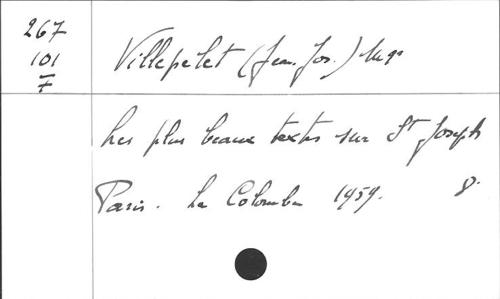 267
101
F
Villepelet (Jean. Jos.) Mgr
Les plus beaux textes sur St Joseph
Paris. La Colombe 1959. 8.